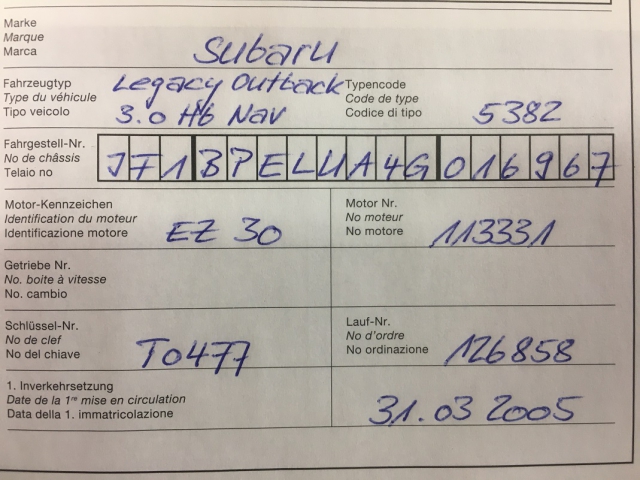 Marke
Marque
Marca
Subaru
Fahrzeugtyp
Type du véhicule
Tipo veicolo
Legacy Outback
3.0 H6 Nav
Typencode
Code de type
Codice di tipo
5382
Fahrgestell-Nr.
No de châssis
Telaio no
JF1BPELUA4G016967
Motor-Kennzeichen
Identification du moteur
Identificazione motore
EZ 30
Motor Nr.
No moteur
No motore
113331
Getriebe Nr.
No. boite à vitesse
No. cambio
Schlüssel-Nr.
No de clef
No del chiave
T0477
Lauf-Nr.
No d'ordre
No ordinazione
126858
1. Inverkehrsetzung
Date de la 1re mise en circulation
Data della 1. immatricolazione
31.03 2005